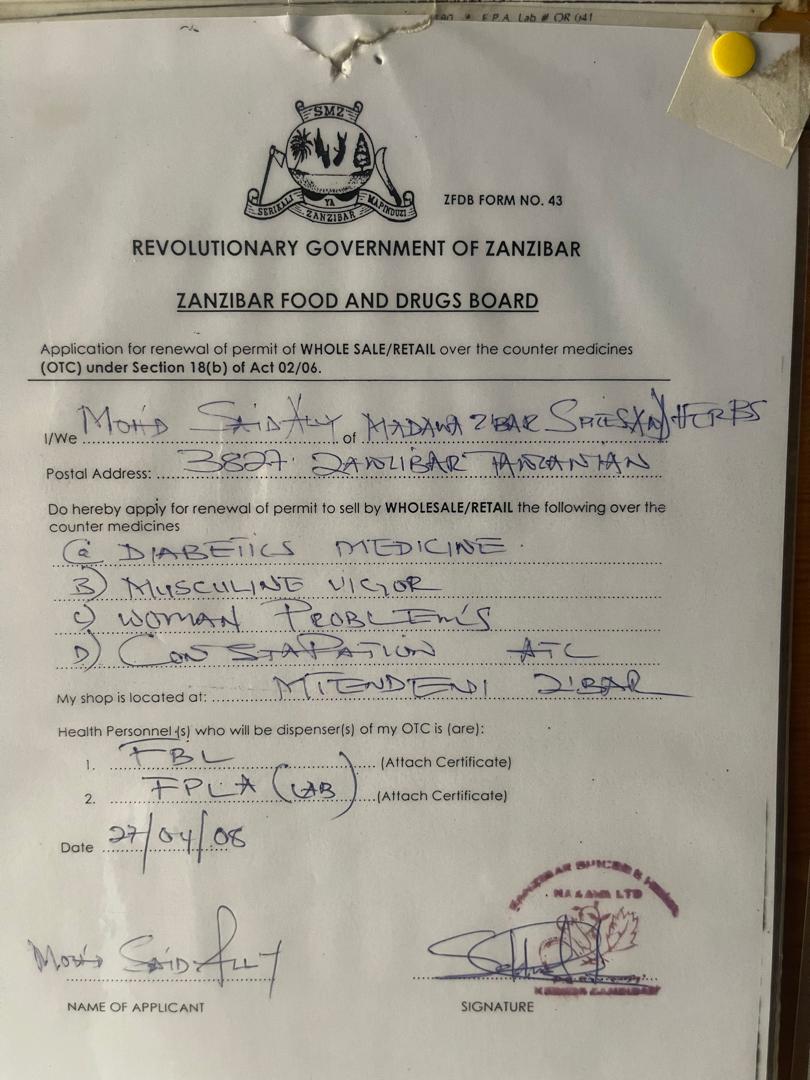 E.P.A. Lab # OR 041
SMZ
SERIKALI YA MAPINDUZI
ZANZIBAR
ZFDB FORM NO. 43
REVOLUTIONARY GOVERNMENT OF ZANZIBAR
ZANZIBAR FOOD AND DRUGS BOARD
Application for renewal of permit of WHOLE SALE/RETAIL over the counter medicines
(OTC) under Section 18(b) of Act 02/06.
I/We MOHD SAID ALLY of MADAWA ZIBAR SPICES AND HERBS
Postal Address: 3827 ZANZIBAR TANZANIAN
Do hereby apply for renewal of permit to sell by WHOLESALE/RETAIL the following over the
counter medicines
@ DIABETICS MEDICINE
B) MUSCULINE VIGOR
C) WOMAN PROBLEM'S
D) CONSTAPATION ATC
My shop is located at: MTENDENI ZIBAR
Health Personnel (s) who will be dispenser(s) of my OTC is (are):
1. FBL (Attach Certificate)
2. FPLA (LAB) (Attach Certificate)
Date 27/04/08
ZANZIBAR SPICES &
LTD
MOHD SAID ALLY
NAME OF APPLICANT SIGNATURE